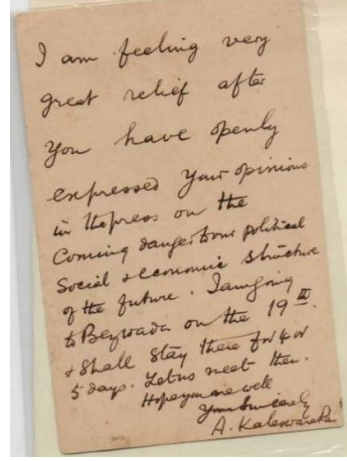 I am feeling very
great relief after
you have openly
expressed your opinions
in the press on the
Coming danger to our political
Social & economic structure
of the future. I am going
to Bezwada on the 19th
& Shall Stay there for 4 or
5 days. Let us meet then.
Hope you are well
Yours Sincerely
A. Kaleswara Rao